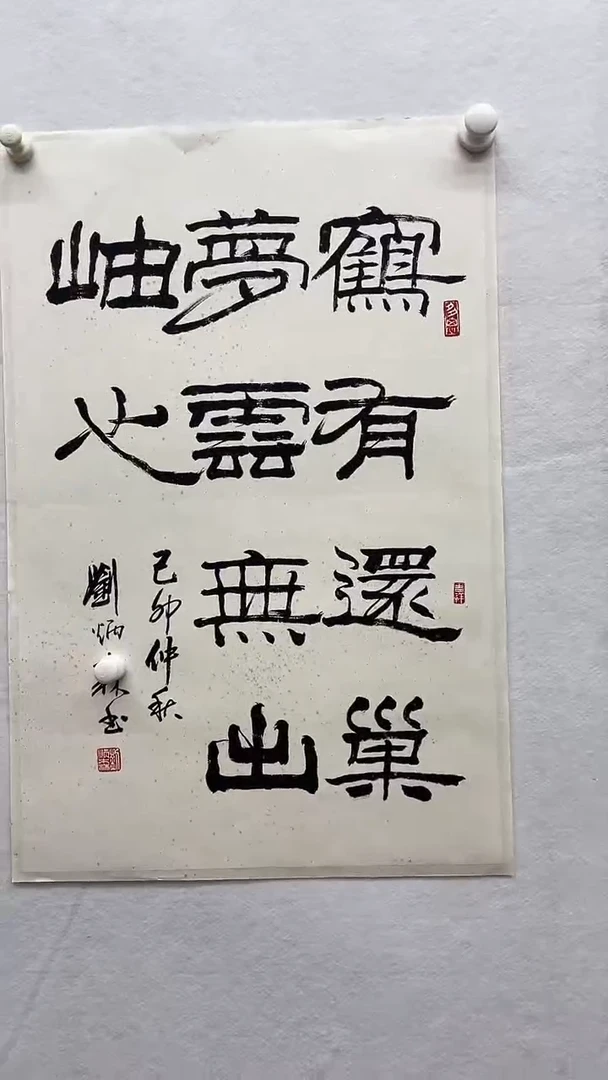 鶴有還巢
夢雲無出
岫心
己卯仲秋
劉炳森書